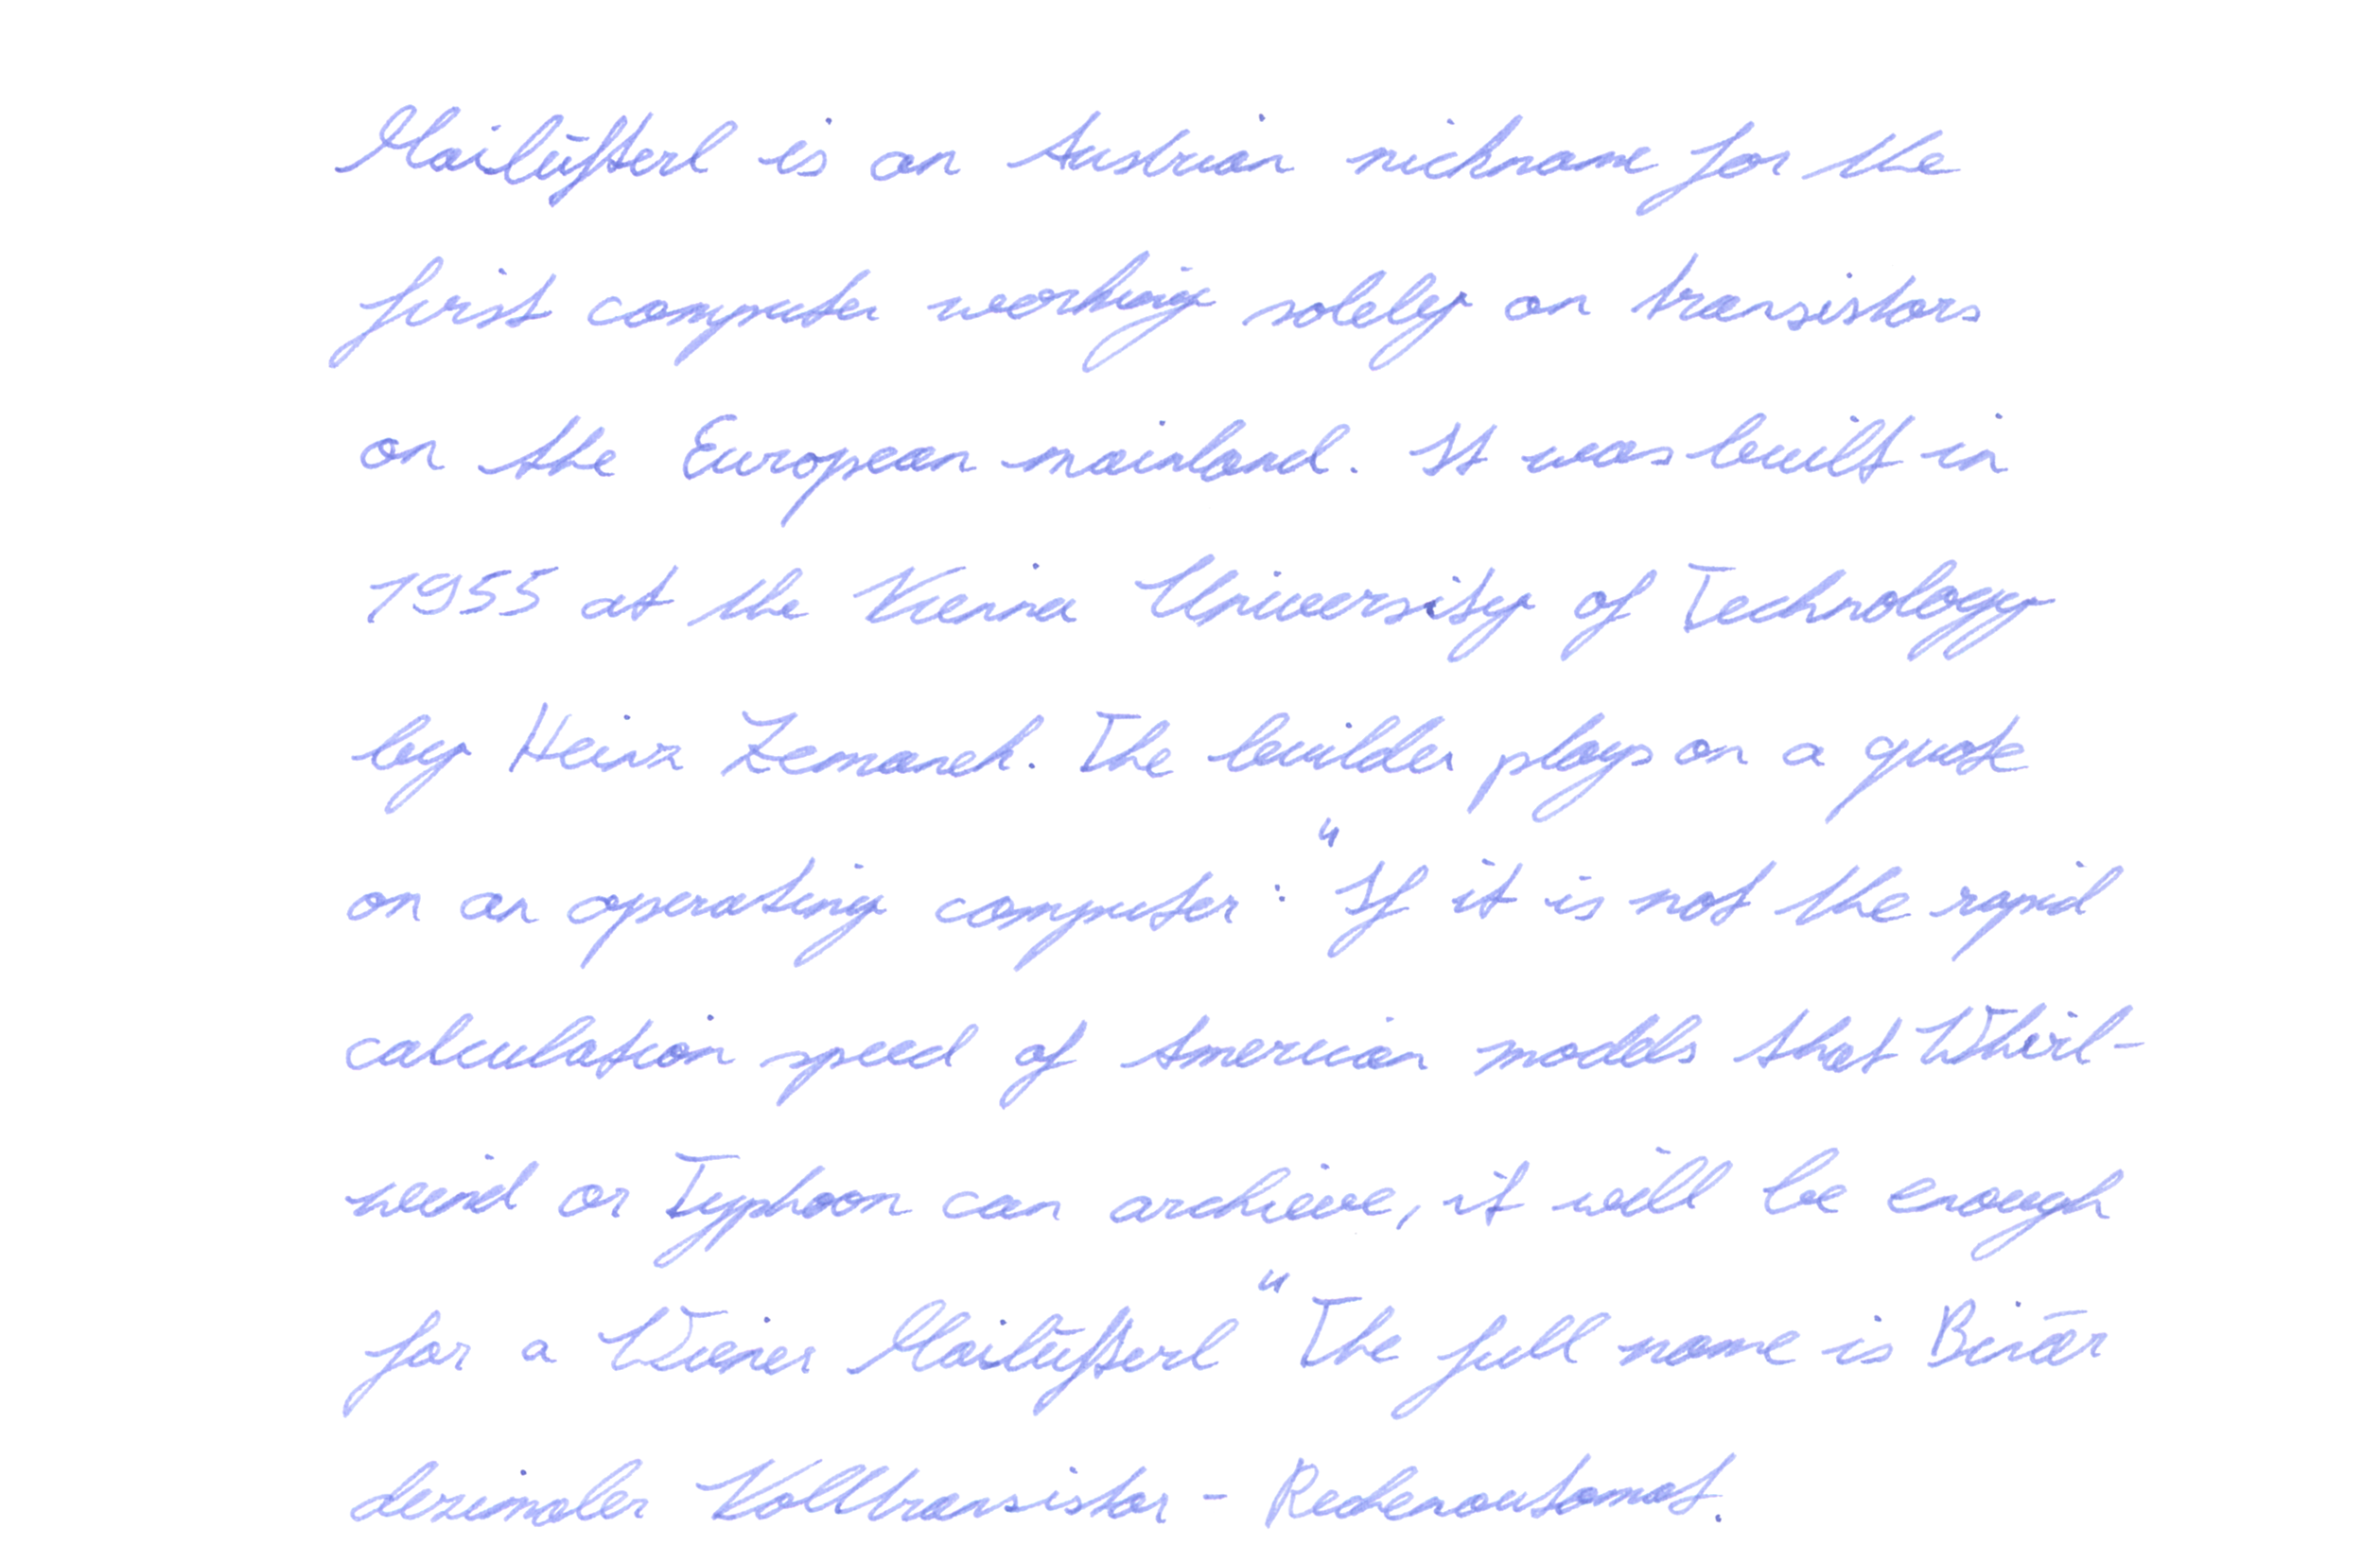 Mailüfterl is an Austrian nickname for the
first computer working solely on transistors
on the European mainland. It was built in
1955 at the Vienna University of Technology
by Heinz Zemanek. The builder plays on a quote
on an operating computer: "If it is not the rapid
calculation speed of American models that Whirl-
wind or Typhoon can archieve, it will be enough
for a Wiener Mailüfterl" The full name is Binär
dezimaler Volltransistor-Rechenautomat.